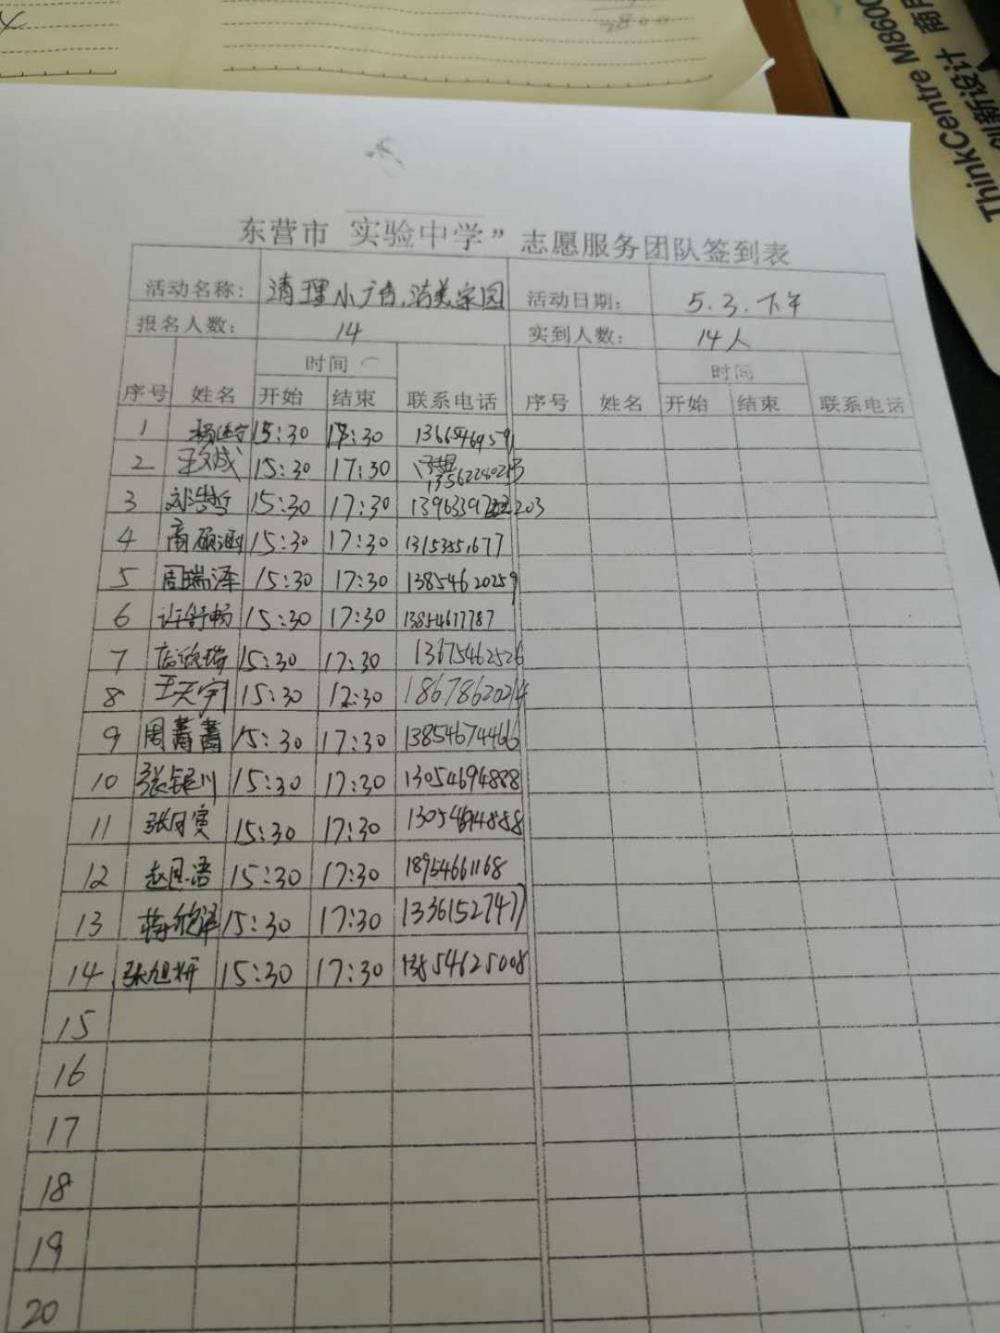 ThinkCentre M8600
创新设计 商用
东营市 实验中学” 志愿服务团队签到表
活动名称: 清理小广告,洁美家园 活动日期: 5.3.下午
报名人数: 14 实到人数: 14人
时间 时间
序号 姓名 开始 结束 联系电话 序号 姓名 开始 结束 联系电话
1 15:30 17:30
2 王文成 15:30 17:30
3 刘浩哲 15:30 17:30
4 商硕涵 15:30 17:30
5 周瑞泽 15:30 17:30 13854620259
6 许舒畅 15:30 17:30 13854617787
7 15:30 17:30 13675462526
8 王天宇 15:30 17:30 18678620214
9 周菁菁 15:30 17:30 13854674466
10 张银川 15:30 17:30 13054694888
11 15:30 17:30 13054694888
12 15:30 17:30 18954661168
13 蒋欣泽 15:30 17:30 13361527477
14 张旭妍 15:30 17:30 13854625008
15
16
17
18
19
20